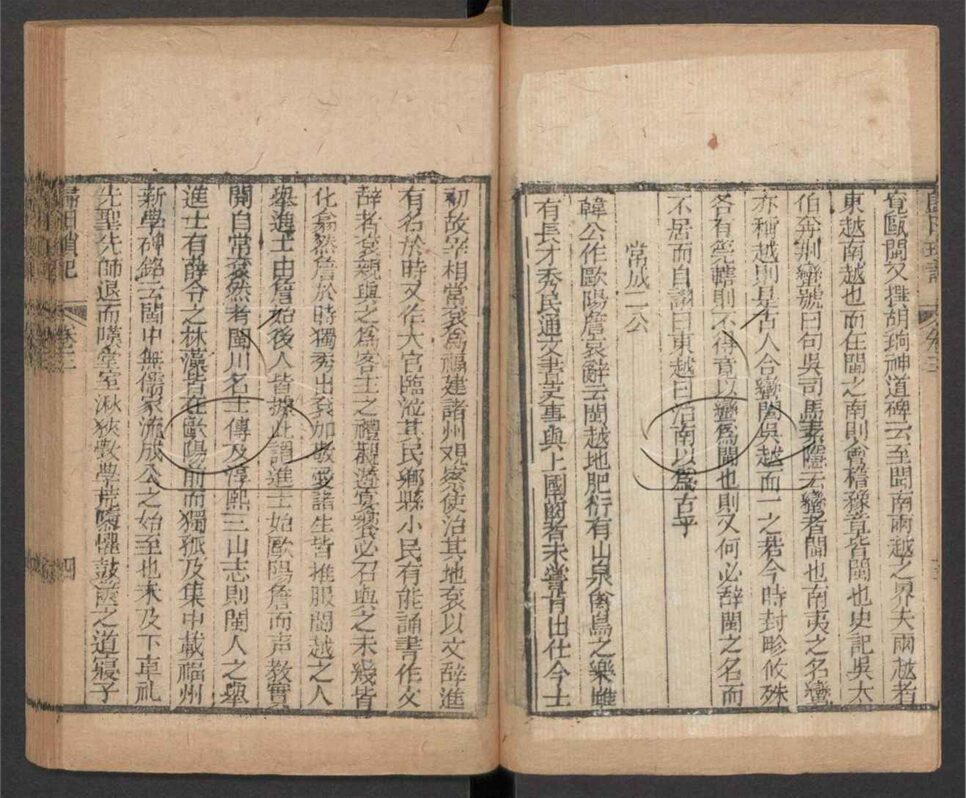 寬歐閩又推胡珦神道碑云至閩南兩越之界夫兩越者
東越南越也而在閩之南則會稽豫章皆閩也史記吳太
伯奔荆蠻號曰句吳司馬索隱云蠻者閩也南夷之名蠻
亦稱越則是古人合蠻閩吳越而一之若今時封畛攸殊
各有筦轄則不得竟以蠻為閩也則又何必辭閩之名而
不居而自謚曰東越曰冶南以為古乎
常成二公
韓公作歐陽詹哀辭云閩越地肥衍有山泉禽鳥之樂雖
有長才秀民通文書吏事與上國齒者未嘗肯出仕今上
初故宰相常袞為福建諸州觀察使治其地袞以文辭進
有名於時又作大官臨涖其民鄉縣小民有能誦書作文
辭者袞親與之為客主之禮觀游宴饗必召與之未幾皆
化翕然詹於時獨秀出袞加敬愛諸生皆推服閩越之人
舉進士由詹始後人皆據此謂進士始歐陽詹而声教實
開自常袞然考閩川名士傳及淳熙三山志則閩人之舉
進士有薛令之林藻皆在歐陽前而獨孤及集中載福州
新學碑銘云閩中無儒家流成公之始至也未及下車礼
先聖先師退而嘆堂室湫狹敎學荒墜懼鼓篋之道寖子
歸田瑣記
卷三
四